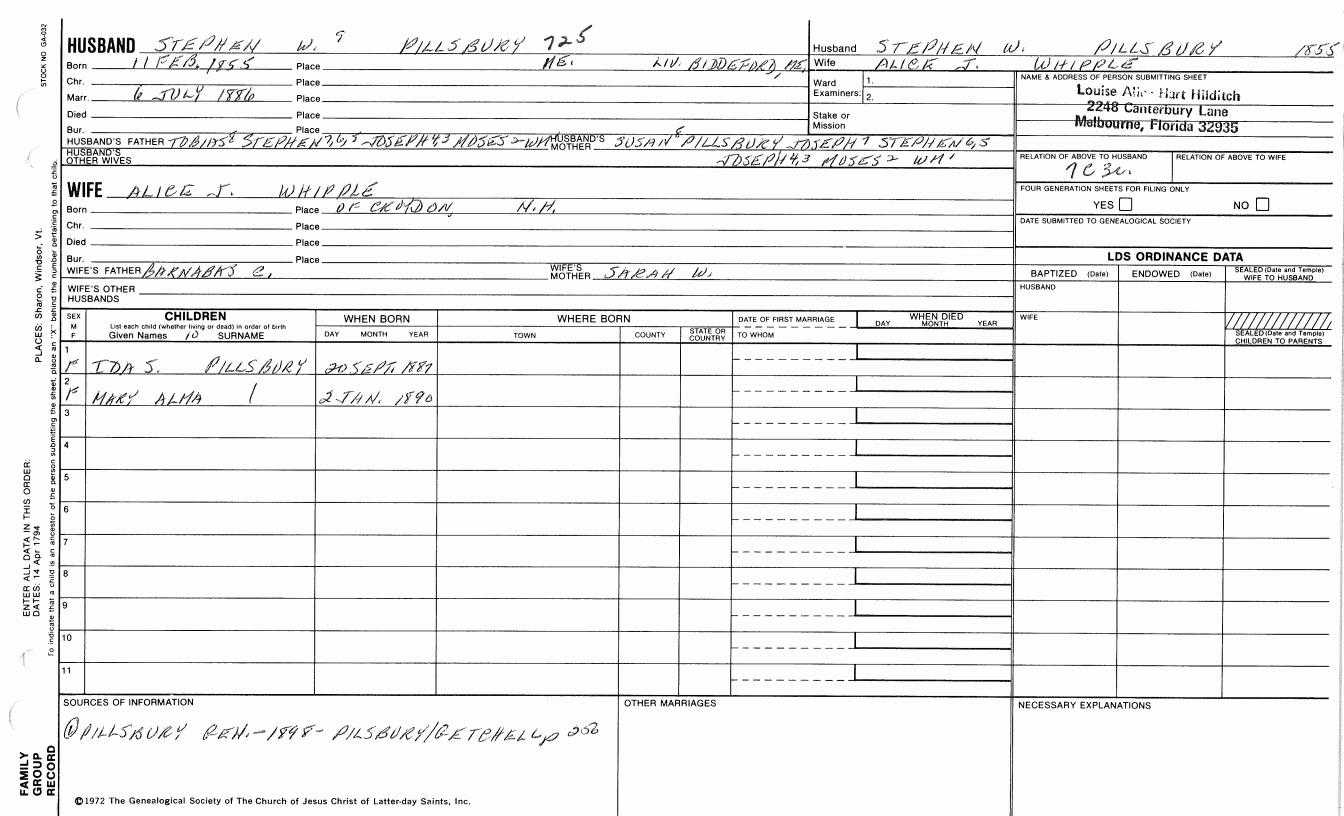 STOCK NO GA-032
HUSBAND STEPHEN W. 9 PILLSBURY 725
Born 11 FEB. 1855 Place ME. LIV. BIDDEFORD, ME.
Chr. Place
Marr. 6 JULY 1886 Place
Died Place
Bur. Place
HUSBAND'S FATHER TOBIAS8 STEPHEN7,6,5 JOSEPH4,3 MOSES2 WM HUSBAND'S MOTHER SUSAN8 PILLSBURY JOSEPH7 STEPHEN6,5
HUSBAND'S OTHER WIVES JOSEPH4,3 MOSES2 WM1
Husband STEPHEN W. PILLSBURY 1855
Wife ALICE J. WHIPPLE
Ward Examiners: 1.
2.
Stake or Mission
NAME & ADDRESS OF PERSON SUBMITTING SHEET
Louise Alice Hart Hilditch
2248 Canterbury Lane
Melbourne, Florida 32935
RELATION OF ABOVE TO HUSBAND RELATION OF ABOVE TO WIFE
7C3r.
FOUR GENERATION SHEETS FOR FILING ONLY
YES NO
DATE SUBMITTED TO GENEALOGICAL SOCIETY
WIFE ALICE J. WHIPPLE
Born Place OF CROYDON, N.H.
Chr. Place
Died Place
Bur. Place
WIFE'S FATHER BARNABAS C. WIFE'S MOTHER SARAH W.
WIFE'S OTHER HUSBANDS
LDS ORDINANCE DATA
BAPTIZED (Date) ENDOWED (Date) SEALED (Date and Temple) WIFE TO HUSBAND
HUSBAND
WIFE
SEALED (Date and Temple) CHILDREN TO PARENTS
SEX M F CHILDREN WHEN BORN WHERE BORN DATE OF FIRST MARRIAGE WHEN DIED
List each child (whether living or dead) in order of birth
Given Names 10 SURNAME DAY MONTH YEAR TOWN COUNTY STATE OR COUNTRY TO WHOM DAY MONTH YEAR
1 F IDA S. PILLSBURY 20 SEPT. 1887
2 F MARY ALMA 2 JAN. 1890
3
4
5
6
7
8
9
10
11
SOURCES OF INFORMATION OTHER MARRIAGES NECESSARY EXPLANATIONS
① PILLSBURY GEN.-1898- PILSBURY/GETCHELL p
©1972 The Genealogical Society of The Church of Jesus Christ of Latter-day Saints, Inc.
FAMILY GROUP RECORD
ENTER ALL DATA IN THIS ORDER:
DATES: 14 Apr 1794
PLACES: Sharon, Windsor, Vt.
To indicate that a child is an ancestor of the person submitting the sheet, place an "X" behind the number pertaining to that child.